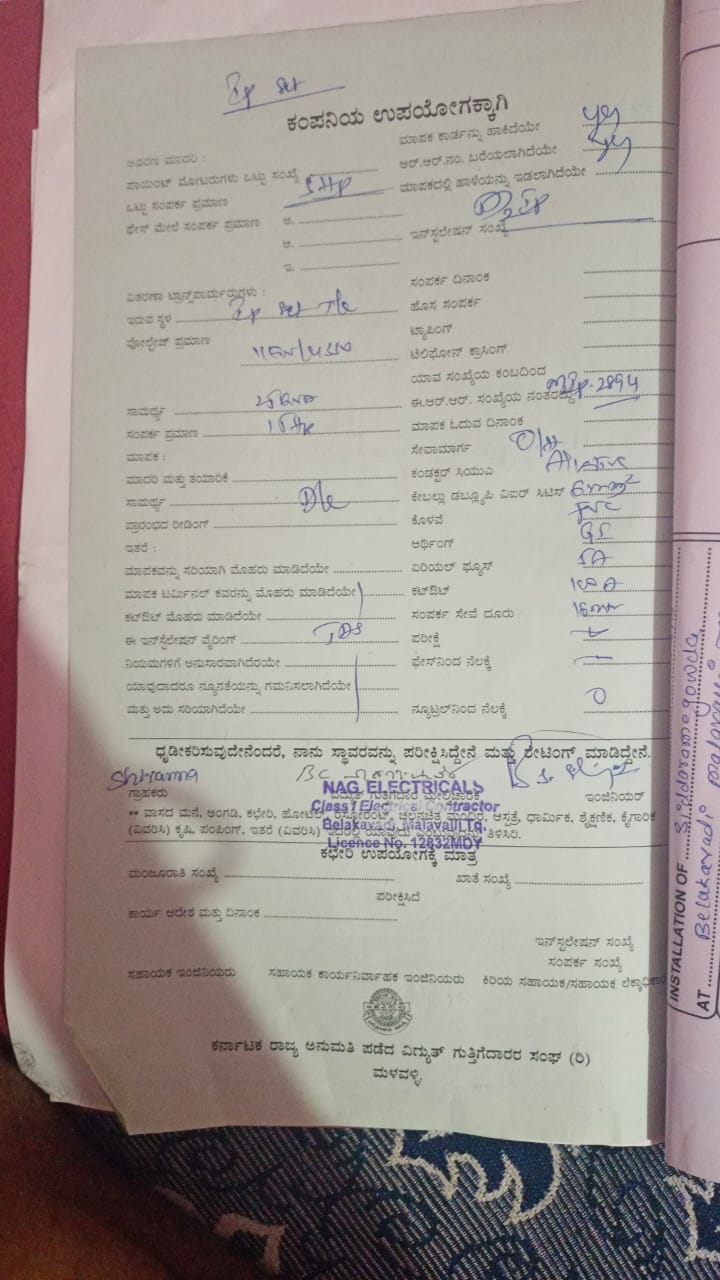 Ip set
ಕಂಪನಿಯ ಉಪಯೋಗಕ್ಕಾಗಿ
ಆವರಣ ಮಾದರಿ :
ಪಾಯಿಂಟ್ ಮೋಟರುಗಳು ಒಟ್ಟು ಸಂಖ್ಯೆ
ಒಟ್ಟು ಸಂಪರ್ಕ ಪ್ರಮಾಣ 5HP
ಫೇಸ್ ಮೇಲೆ ಸಂಪರ್ಕ ಪ್ರಮಾಣ ಅ.
ಆ.
ಇ.
ಮಾಪಕ ಕಾರ್ಡನ್ನು ಹಾಕಿದೆಯೇ yes
ಆರ್.ಆರ್.ನಂ. ಬರೆಯಲಾಗಿದೆಯೇ yes
ಮಾಪಕದಲ್ಲಿ ಹಾಳೆಯನ್ನು ಇಡಲಾಗಿದೆಯೇ
ಇನ್‌ಸ್ಟಲೇಷನ್ ಸಂಖ್ಯೆ
ವಿತರಣಾ ಟ್ರಾನ್ಸ್‌ಪಾರ್ಮರುಗಳು :
ಇರುವ ಸ್ಥಳ Ip set T/c
ವೋಲ್ಟೇಜ್ ಪ್ರಮಾಣ
ಸಾಮರ್ಥ್ಯ 25KVA
ಸಂಪರ್ಕ ಪ್ರಮಾಣ
ಮಾಪಕ :
ಮಾದರಿ ಮತ್ತು ತಯಾರಿಕೆ
ಸಾಮರ್ಥ್ಯ
ಪ್ರಾರಂಭದ ರೀಡಿಂಗ್
ಇತರೆ :
ಮಾಪಕವನ್ನು ಸರಿಯಾಗಿ ಮೊಹರು ಮಾಡಿದೆಯೇ
ಮಾಪಕ ಟರ್ಮಿನಲ್ ಕವರನ್ನು ಮೊಹರು ಮಾಡಿದೆಯೇ
ಕಟ್‌ಔಟ್ ಮೊಹರು ಮಾಡಿದೆಯೇ
ಈ ಇನ್‌ಸ್ಟಲೇಷನ್ ವೈರಿಂಗ್
ನಿಯಮಗಳಿಗೆ ಅನುಸಾರವಾಗಿದೆರಯೇ
ಯಾವುದಾದರೂ ನ್ಯೂನತೆಯನ್ನು ಗಮನಿಸಲಾಗಿದೆಯೇ
ಮತ್ತು ಅದು ಸರಿಯಾಗಿದೆಯೇ
ಸಂಪರ್ಕ ದಿನಾಂಕ
ಹೊಸ ಸಂಪರ್ಕ
ಟ್ಯಾಪಿಂಗ್
ಟೆಲಿಫೋನ್ ಕ್ರಾಸಿಂಗ್
ಯಾವ ಸಂಖ್ಯೆಯ ಕಂಬದಿಂದ
ಈ.ಆರ್.ಆರ್. ಸಂಖ್ಯೆಯ ನಂತರದ್ದು
ಮಾಪಕ ಓದುವ ದಿನಾಂಕ
ಸೇವಾಮಾರ್ಗ O/H
ಕಂಡಕ್ಟರ್ ಸಿಯುಎ
ಕೇಬಲ್ಲು ಡಬ್ಲ್ಯೂಪಿ ವಿಐರ್ ಸಿಟಿಸ್ 6mm²
ಕೊಳವೆ PVC
ಆರ್ಥಿಂಗ್ GI
ಏರಿಯಲ್ ಫ್ಯೂಸ್ 5A
ಕಟ್‌ಔಟ್ 100A
ಸಂಪರ್ಕ ಸೇವೆ ದೂರು
ಪರೀಕ್ಷೆ
ಫೇಸ್‌ನಿಂದ ನೆಲಕ್ಕೆ
ನ್ಯೂಟ್ರಲ್‌ನಿಂದ ನೆಲಕ್ಕೆ 0
ಧೃಡೀಕರಿಸುವುದೇನೆಂದರೆ, ನಾನು ಸ್ಥಾವರವನ್ನು ಪರೀಕ್ಷಿಸಿದ್ದೇನೆ ಮತ್ತು ಶೇಟಿಂಗ್ ಮಾಡಿದ್ದೇನೆ.
ಗ್ರಾಹಕರು ವಿದ್ಯುತ್ ಗುತ್ತಿಗೆದಾರ ಮೇಲಿಚಾರಕ ಇಂಜಿನಿಯರ್
NAG ELECTRICALS
Class I Electrical Contractor
Belakavadi, Malavalli Tq.
Licence No. 12832MDY
** ವಾಸದ ಮನೆ, ಅಂಗಡಿ, ಕಛೇರಿ, ಹೋಟೆಲ್, ರೆಸ್ಟೋರೆಂಟ್, ಚಲನಚಿತ್ರ ಮಂದಿರ, ಆಸ್ಪತ್ರೆ, ಧಾರ್ಮಿಕ, ಶೈಕ್ಷಣಿಕ, ಕೈಗಾರಿಕ
(ವಿವರಿಸಿ) ಕೃಷಿ, ಪಂಪಿಂಗ್, ಇತರೆ (ವಿವರಿಸಿ) ಇದರಲ್ಲಿ ಯಾವುದು ಎಂಬುದನ್ನು ತಿಳಿಸಿರಿ.
ಕಛೇರಿ ಉಪಯೋಗಕ್ಕೆ ಮಾತ್ರ
ಮಂಜೂರಾತಿ ಸಂಖ್ಯೆ ಖಾತೆ ಸಂಖ್ಯೆ
ಪರೀಕ್ಷಿಸಿದೆ
ಕಾರ್ಯ ಆದೇಶ ಮತ್ತು ದಿನಾಂಕ
ಇನ್‌ಸ್ಟಲೇಷನ್ ಸಂಖ್ಯೆ
ಸಂಪರ್ಕ ಸಂಖ್ಯೆ
ಸಹಾಯಕ ಇಂಜಿನಿಯರು ಸಹಾಯಕ ಕಾರ್ಯನಿರ್ವಾಹಕ ಇಂಜಿನಿಯರು ಕಿರಿಯ ಸಹಾಯಕ/ಸಹಾಯಕ ಲೆಕ್ಕಾಧಿಕಾರಿ
ಕರ್ನಾಟಕ ರಾಜ್ಯ ಅನುಮತಿ ಪಡೆದ ವಿದ್ಯುತ್ ಗುತ್ತಿಗೆದಾರರ ಸಂಘ (ರಿ)
ಮಳವಳ್ಳಿ.
INSTALLATION OF Siddaramegowda
AT Belakavadi